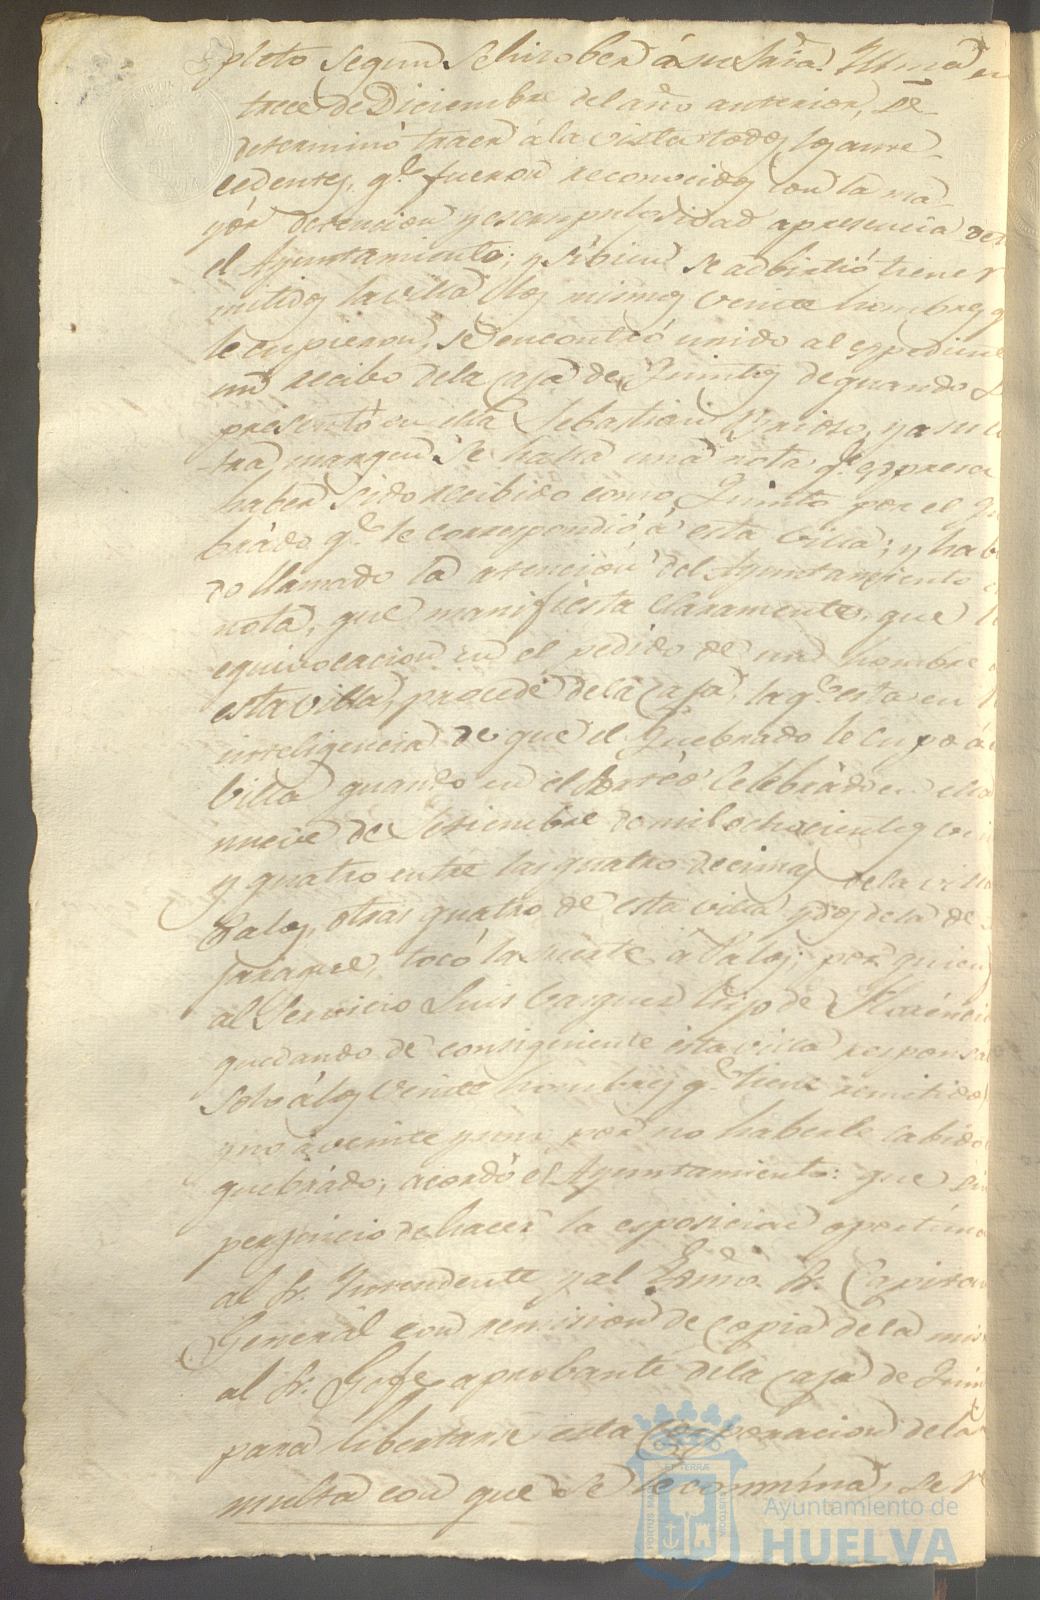 pleto segun se hiso ber á su Sria. Yltma en
trece de Diciembre del año anterior, se
determinó traer á la vista todos los ante-
cedentes, qe. fueron reconocidos con la ma-
yor detencion y escrupulosidad a presencia de
el Ayuntamiento; y si bien se adbirtió tiene r
mitidos la villa los mismos veinte hombres q
le cupieron, se encontró unido al espediente
un recibo de la caja de Quintos de quando se
presentó en ella Sebastian Brioso, y a su
margen se halla una nota qe. espresa
haber sido recibido como Quinto por el qu
brado qe. le correspondió á esta villa; y habi
do llamado la atencion del Ayuntamiento
nota, que manifiesta claramente, que
equivocacion en el pedido de un hombre
esta villa, procede de la caja, la qe. esta en
inteligencia de que el quebrado le cupo á
villa quando en el sorteo celebrado en ella
nueve de Setiembre de mil ochocientos vei
y quatro entre las quatro decimas de la villa
Palos, otras quatro de esta villa y dos de la de
jaraque, tocó la suerte á Palos; por quien
al Servicio Luis Vasques hijo de Florenci
quedando de consiguiente esta villa responsa
solo á los veinte hombres qe. tiene remitidos
y no á veinte y uno por no haberle cabido
quebrado; acordó el Ayuntamiento: que sin
perjuicio de hacer la esposicion oportuna
al Sr. Yntendente y al Esmo. Sr. Capitan
General con remision de copia de la mis
al Sr. Gefe aprobante de la caja de Quin
para libertarse esta corporacion de la
multa con que se le conmina, se r
PORTUS MARIS ET TERRÆ CUSTODIA
Ayuntamiento de
HUELVA